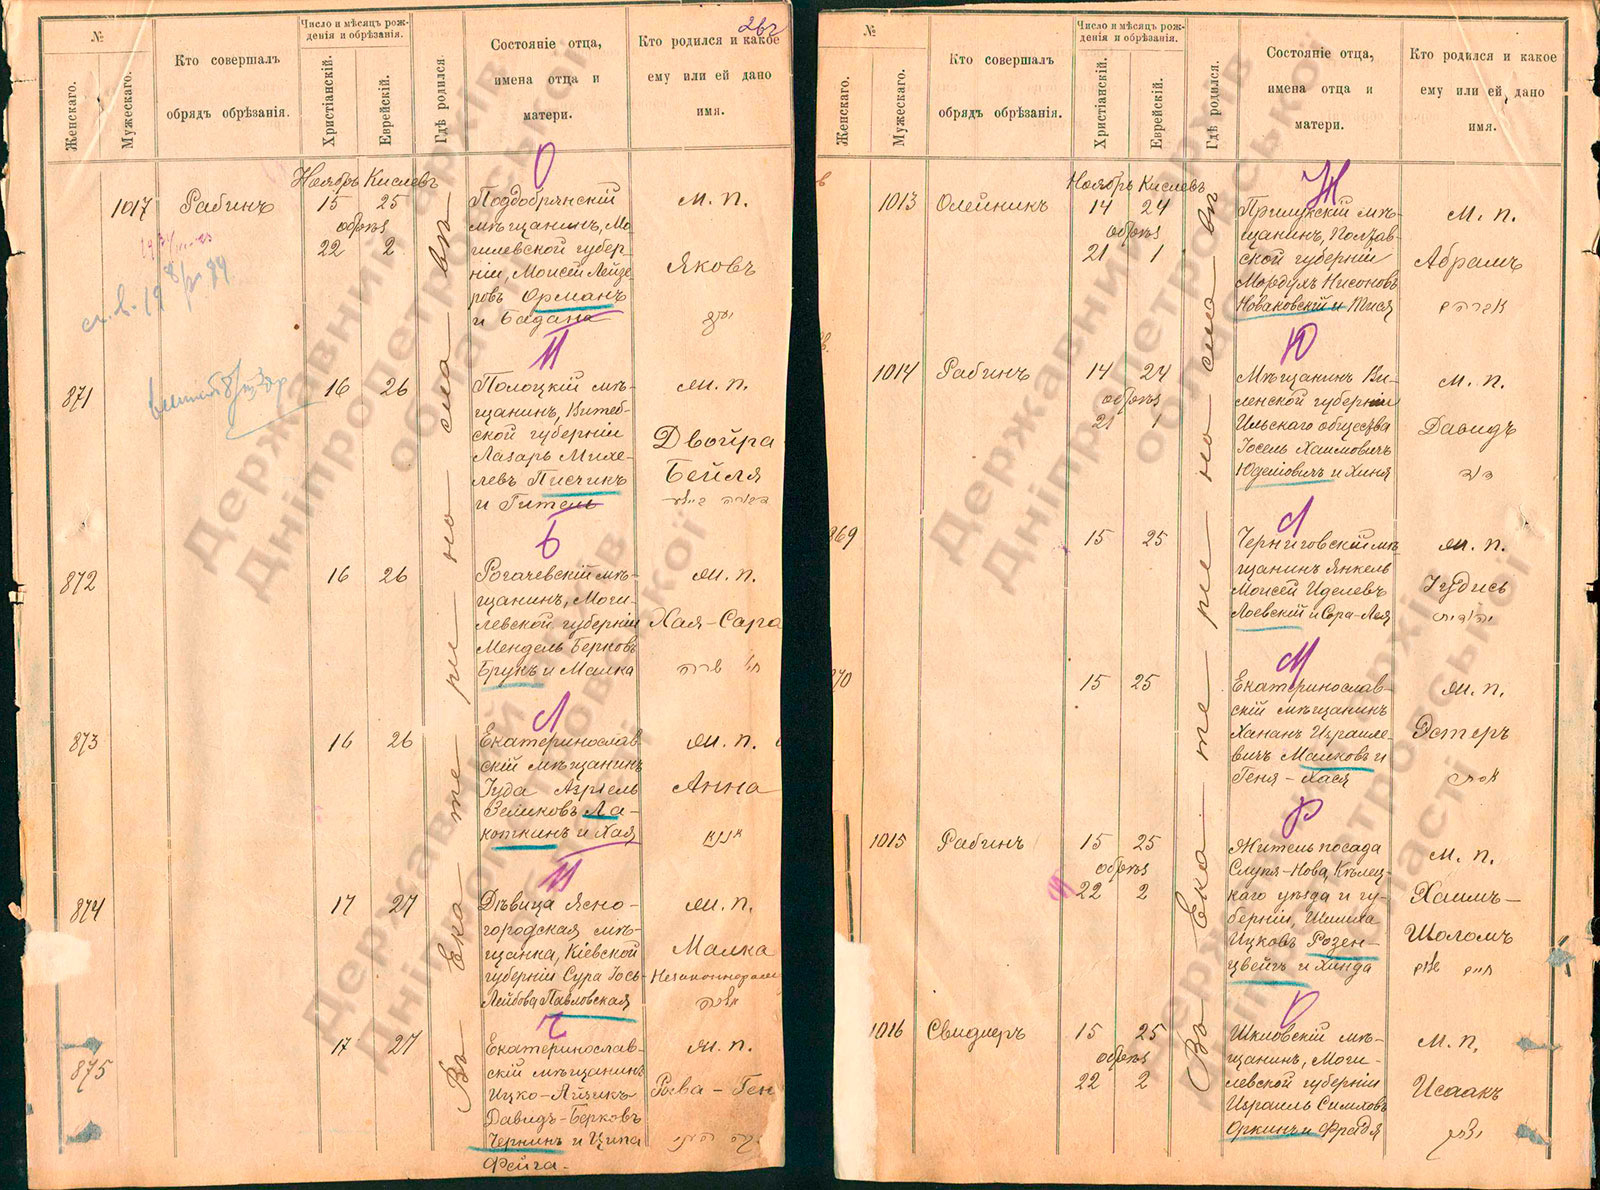 262
№
Женскаго.
Мужескаго.
Кто совершалъ
обрядъ обрѣзанія.
Число и мѣсяцъ рож-
денія и обрѣзанія.
Христіанскій.
Еврейскій.
Гдѣ родился.
Состояніе отца,
имена отца и
матери.
Кто родился и какое
ему или ей дано
имя.
Въ Екатеринославѣ
1017
Рабинъ
Ноябрь Кислевъ
15 25
обрѣз
22 2
Поддобрянскій
мѣщанинъ, Мо
гилевской губер
ніи, Моисей Лейзе
ровъ Орманъ
и Бадана
М. п.
Яковъ
יעקב
871
16 26
Полоцкій мѣ-
щанинъ, Витеб-
ской губерніи
Лазарь Михе-
левъ Писчикъ
и Гитель
М. п.
Двойра
Бейля
דבורה ביילע
872
16 26
Рогачевскій мѣ-
щанинъ, Моги-
левской губерніи
Мендель Берковъ
Брукъ и Малка
М. п.
Хая-Сара
חי' שרה
873
16 26
Екатеринослав
скій мѣщанинъ
Іуда Азріель
Зеликовъ Ла-
коткинъ и Хая
М. п.
Анна
874
17 27
Дѣвица Ясно-
городская мѣ-
щанка, Кіевской
губерніи Сура Іось
Лейбова Павловская
М. п.
Малка
מלכה
875
17 27
Екатеринослав-
скій мѣщанинъ
Ицко-Айзикъ
Давидъ-Берковъ
Чернинъ и Ципа
Фейга.
М. п.
№
Женскаго.
Мужескаго.
Кто совершалъ
обрядъ обрѣзанія.
Число и мѣсяцъ рож-
денія и обрѣзанія.
Христіанскій.
Еврейскій.
Гдѣ родился.
Состояніе отца,
имена отца и
матери.
Кто родился и какое
ему или ей дано
имя.
Въ Екатеринославѣ
1013
Олейникъ
Ноябрь Кислевъ
14 24
обрѣз
21 1
Прилукскій мѣ-
щанинъ, Полтав-
ской губерніи
Мордухъ Нисоновъ
Новаковскій и Тися
М. п.
Абрамъ
אברהם
1014
Рабинъ
14 24
обрѣз
21 1
Мѣщанинъ Ви-
ленской губерніи
Ильскаго общества
Іосель Хаимовичъ
Юдейовичъ и Хиня
М. п.
Давидъ
דוד
869
15 25
Черниговскій мѣ-
щанинъ Янкель
Моисей Иделевъ
Лоевскій и Сора-Лея
М. п.
Іудись
יהודית
870
15 25
Екатеринослав-
скій мѣщанинъ
Хананъ Израиле-
вичъ Малковъ и
Геня-Хася
М. п.
Эстеръ
אסתר
1015
Рабинъ
15 25
обрѣз
22 2
Житель посада
Слупя-Нова, Кѣлец-
каго уѣзда и гу-
берніи, Шлиха
Ицковъ Розен-
цвейгъ и Хинда
М. п.
Хаимъ-
Шоломъ
חיים שלום
1016
Свидлеръ
15 25
обрѣз
22 2
Шкловскій мѣ-
щанинъ, Моги-
левской губерніи
Израиль Симховъ
Оркинъ и Фрадя
М. п.
Исаакъ
יצחק
Державний архів
Дніпропетровської
області